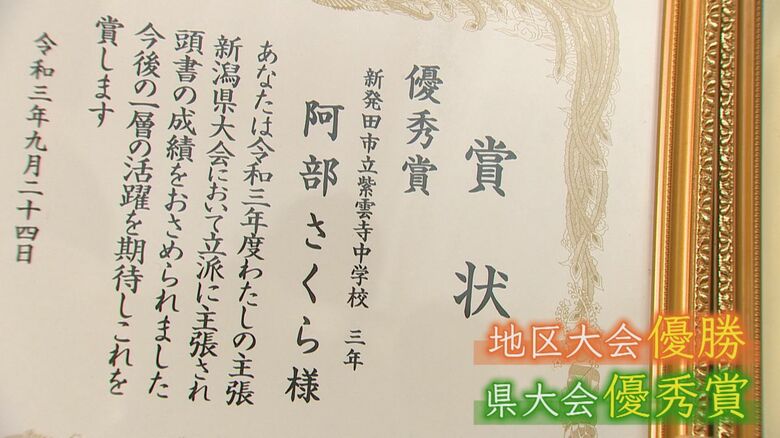 賞状
優秀賞
新発田市立紫雲寺中学校 三年
阿部さくら様
あなたは令和三年度わたしの主張
新潟県大会において立派に主張され
頭書の成績をおさめられました
今後の一層の活躍を期待しこれを
賞します
令和三年九月二十四日
地区大会優勝
県大会優秀賞